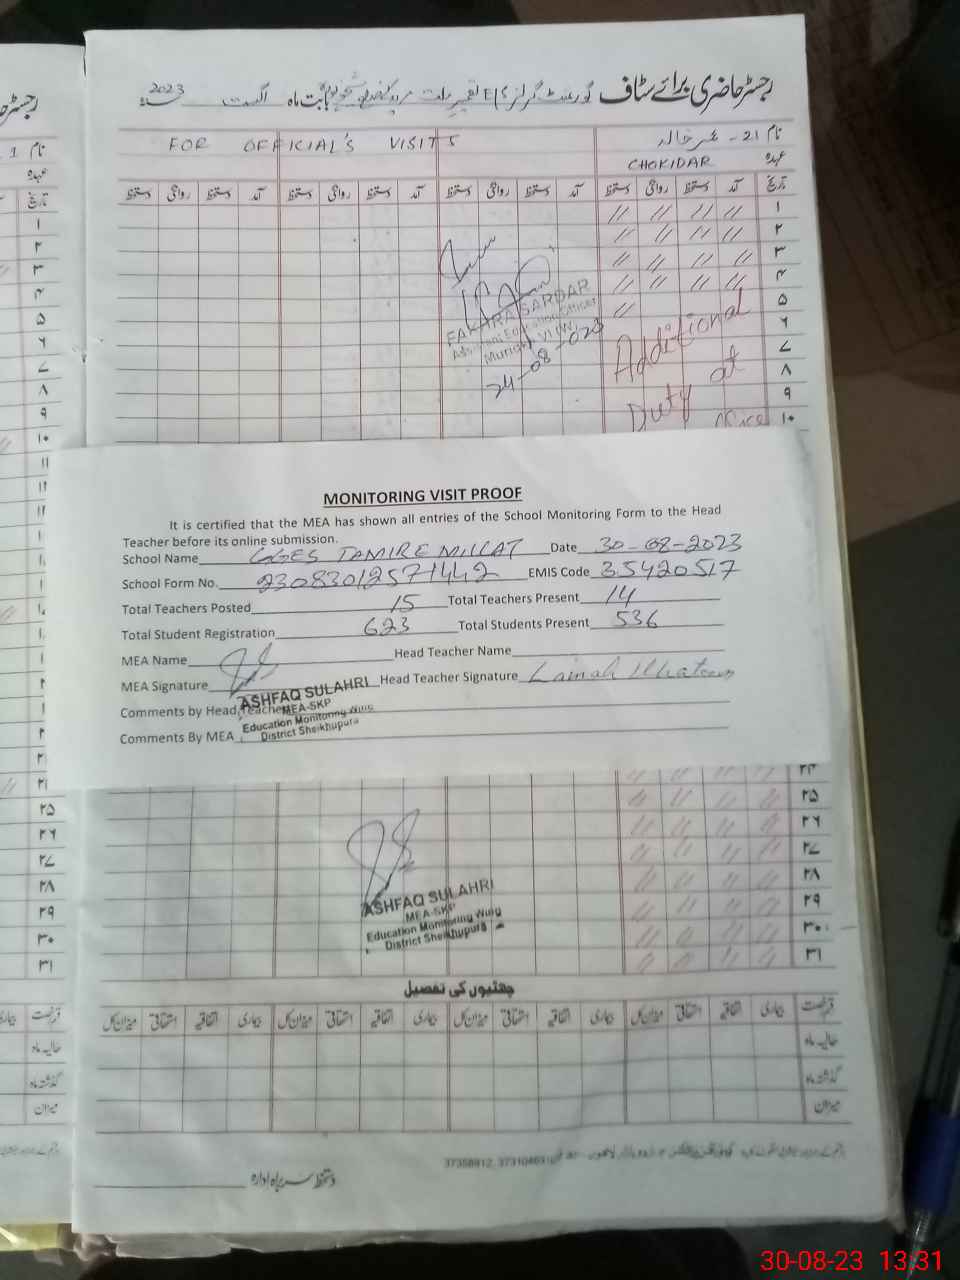 رجسٹر حاضری برائے سٹاف گورنمنٹ گرلز E/S تعمیر ملت بابت ماہ اگست 2023
نام 21- عمر خالد
FOR OFFICIAL'S VISITS
عہدہ CHOKIDAR
تاریخ آمد دستخط روانگی دستخط آمد دستخط روانگی دستخط آمد دستخط روانگی دستخط آمد دستخط روانگی دستخط
۱
۲
۳
۴
۵
۶
۷
۸
۹
۱۰
FAKHRA SARDAR
Assistant Education Officer
24-08-023
Additional
Duty at
MONITORING VISIT PROOF
It is certified that the MEA has shown all entries of the School Monitoring Form to the Head
Teacher before its online submission.
School Name GGES TAMIRE MILLAT Date 30-08-2023
School Form No. 23083012571442 EMIS Code 35420517
Total Teachers Posted 15 Total Teachers Present 14
Total Student Registration 623 Total Students Present 536
MEA Name Head Teacher Name
MEA Signature Head Teacher Signature
Comments by Head Teacher
Comments By MEA
ASHFAQ SULAHRI
MEA-SKP
Education Monitoring Wing
District Sheikhupura
۲۵
۲۶
۲۷
۲۸
۲۹
۳۰
۳۱
ASHFAQ SULAHRI
MEA-SKP
Education Monitoring Wing
District Sheikhupura
چھٹیوں کی تفصیل
قسم رخصت بیماری اتفاقیہ استحقاقی میزان کل بیماری اتفاقیہ استحقاقی میزان کل بیماری اتفاقیہ استحقاقی میزان کل
حالیہ ماہ
گذشتہ ماہ
میزان
دستخط سربراہ ادارہ
30-08-23 13:31